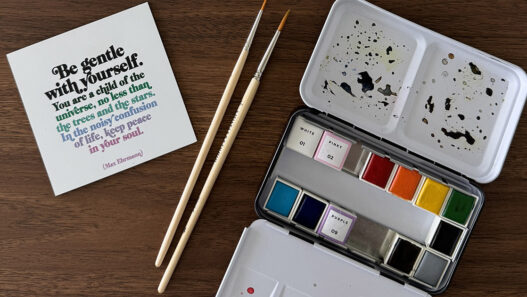 Be gentle
with yourself.
You are a child of the
universe, no less than
the trees and the stars.
In the noisy confusion
of life, keep peace
in your soul.
(Max Ehrmann)
WHITE
01
PINKY
02
PURPLE
09